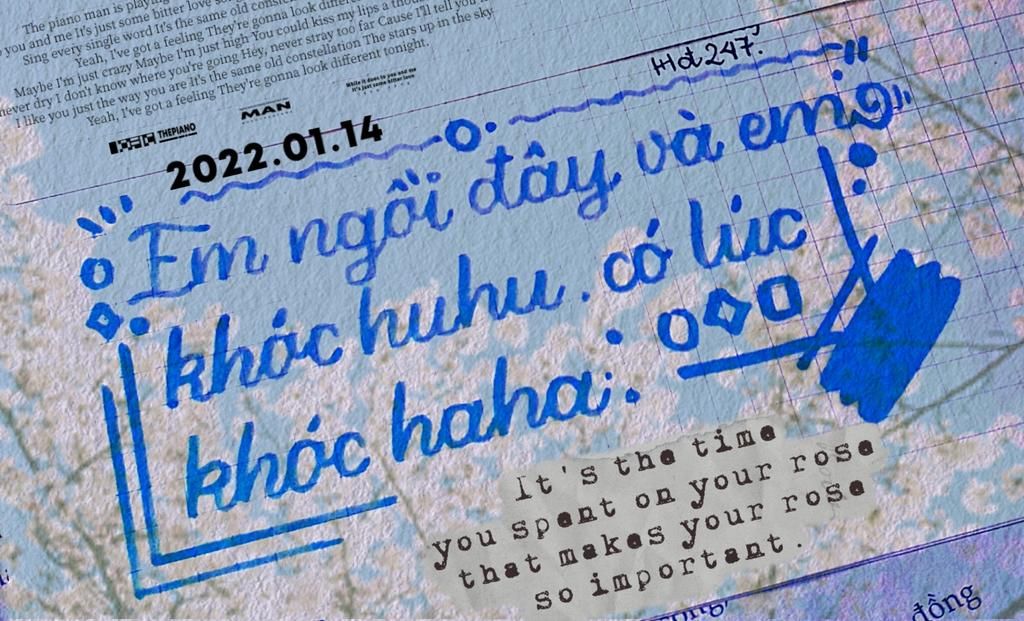 The piano man is playing
you and me It's just some bitter love
Sing every single word It's the same old
Yeah, I've got a feeling They're gonna look
Maybe I'm just crazy Maybe I'm just high You could kiss my lips a
ever dry I don't know where you're going Hey, never stray too far Cause I'll tell you
I like you just the way you are It's the same old constellation The stars up in the sky
Yeah, I've got a feeling They're gonna look different tonight.
While it does to you and me
It's just some bitter love
MAN
THEPIANO
2022.01.14
Hot 247.
Em ngồi đây và em
khóc huhu. có lúc
khóc haha.
It's the time
you spent on your rose
that makes your rose
so important.
đồng